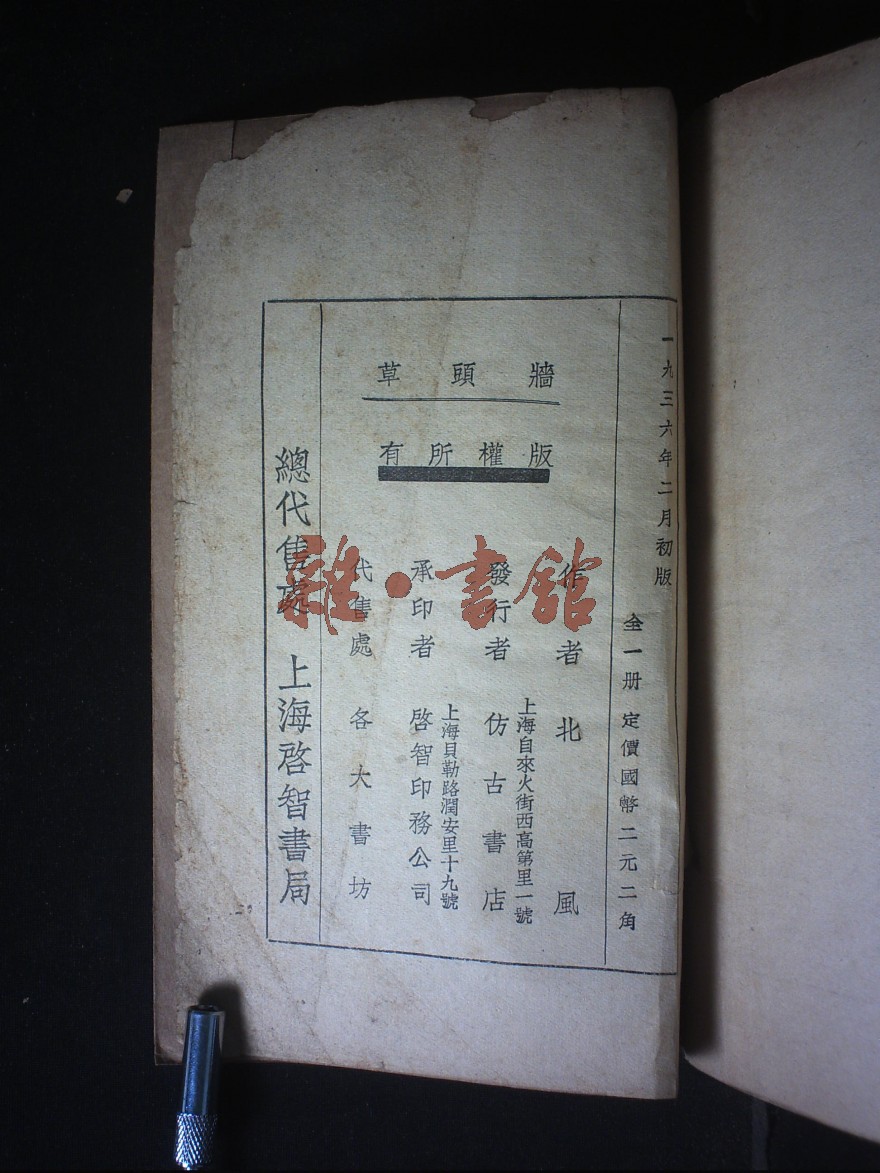 一九三六年二月初版
全一册 定價國幣二元二角
牆頭草
版權所有
作者 北風
上海自來火街西高第里一號
發行者 仿古書店
上海貝勒路潤安里十九號
承印者 啓智印務公司
代售處 各大書坊
總代售處 上海啓智書局
雜·書館